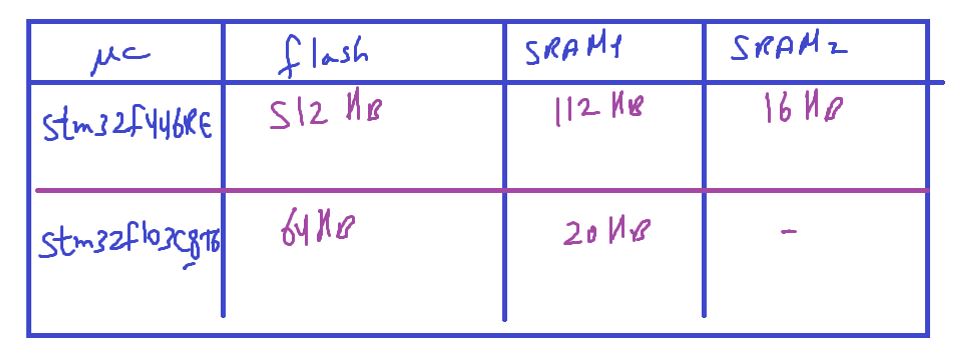 μc flash SRAM1 SRAM2
stm32f446RE 512 KB 112 KB 16 KB
stm32f103C8T6 64 KB 20 KB -